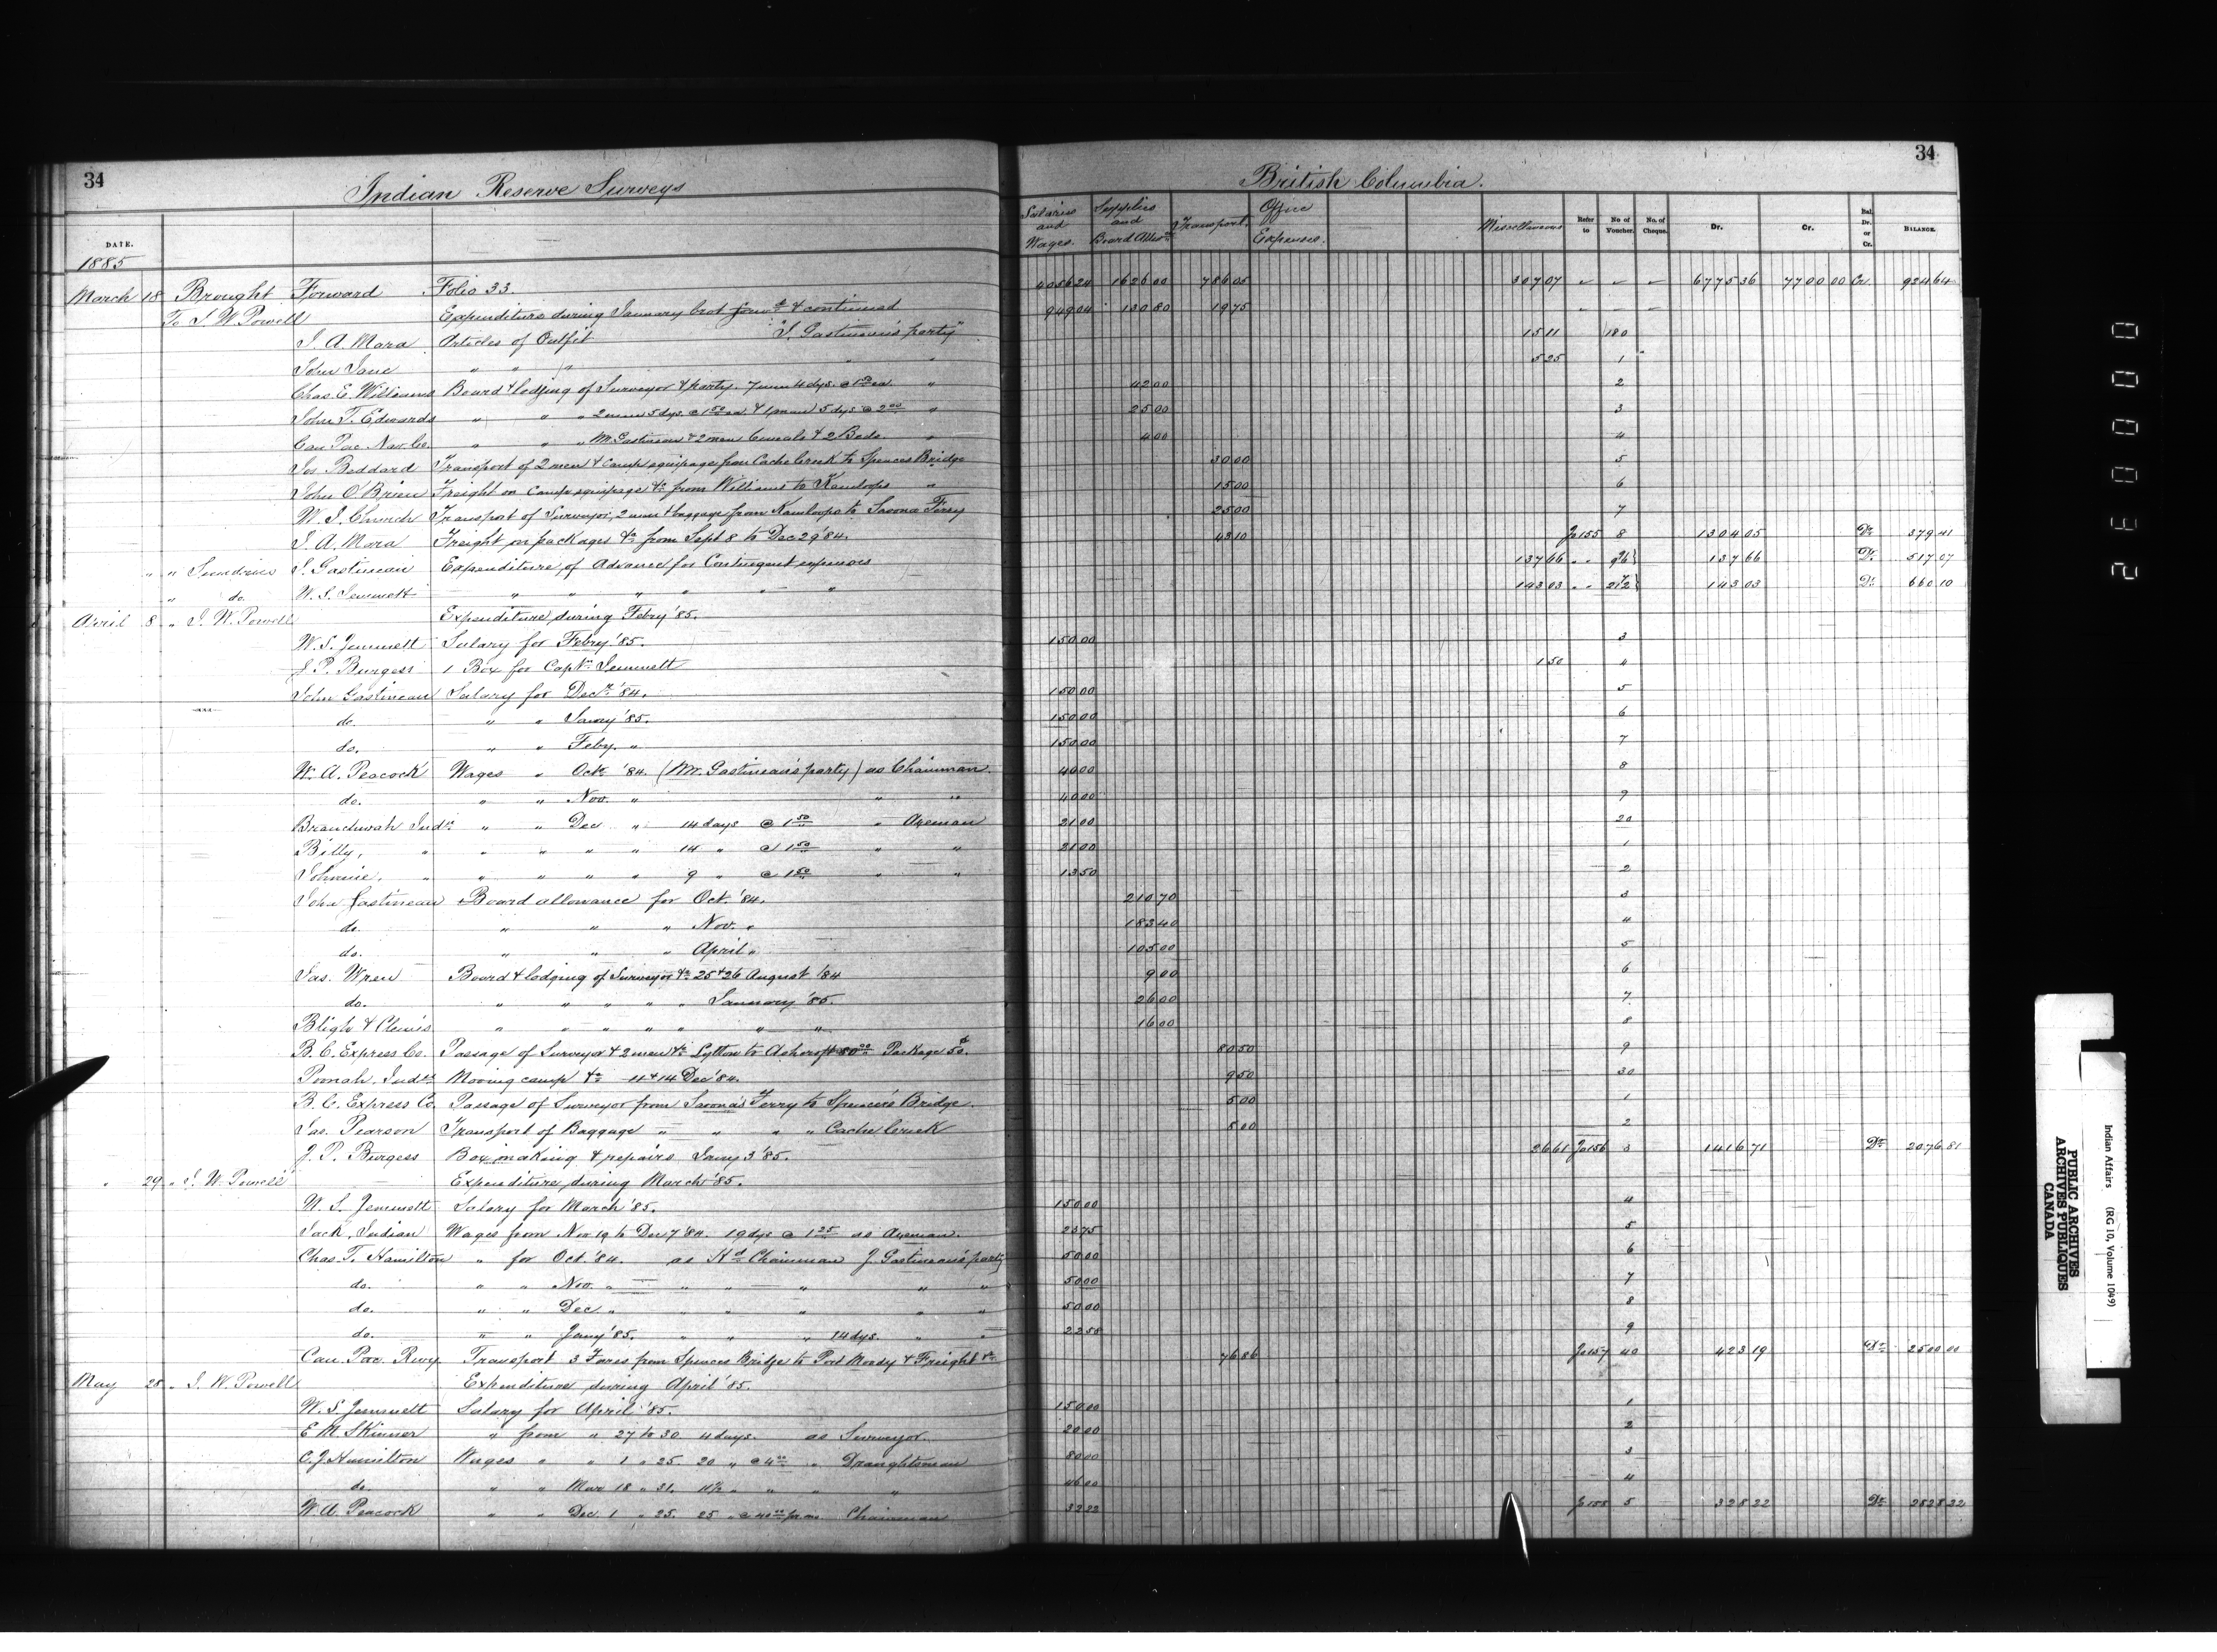 34 Indian Reserve Surveys British Columbia. 34
DATE. Salaries and Wages. Supplies and Board Allow Transport. Office Expenses. Miscellaneous Refer to No of Voucher. No. of Cheque. Dr. Cr. Bal. Dr. or Cr. BALANCE.
1885
March 18 Brought Forward Folio 33. 4056 24 1626 00 786 05 307 07 6775 36 7700 00 Cr. 924 64
To I. W. Powell Expenditure during January brot forwd & continued 949 04 130 80 19 75
J. A. Mara Articles of Outfit "J. Gastineau's party" 15 11 180
John Jane " " " " 5 25 1
Chas. E. Williams Board & lodging of Surveyor & party. 7 men 4 dys. @ 1 50 ea. " 42 00 2
John T. Edwards " " " 2 men 5 dys. @ 1 50 ea. & 1 man 5 dys @ 2 00 " 25 00 3
Can Pac. Nav. Co. " " " M. Gastineau & 2 men 6 meals & 2 Beds. " 4 00 4
Jos Beddard Transport of 2 men & camp equipage from Cache Creek to Spences Bridge 30 00 5
John O'Brien Freight on camp equipage &c. from Williams to Kamloops " 15 00 6
W. J. Church Transport of Surveyor, 2 men & baggage from Kamloops to Savona Ferry 25 00 7
J. A. Mara Freight on packages &c. from Sept 8 to Dec 29 '84. 43 10 Jo 155 8 1304 05 Dr. 379 41
" " Sundries J. Gastineau Expenditure of Advance for Contingent expenses 137 66 " " 137 66 Dr. 517 07
" do. W. S. Jemmett " " " " " 143 03 " " 143 03 Dr. 660 10
April 8 " I. W. Powell Expenditure during Febry '85.
W. S. Jemmett Salary for Febry '85. 150 00 3
J. P. Burgess 1 Box for Captn. Jemmett 1 50 4
John Gastineau Salary for Decr. '84. 150 00 5
do. " " Janry '85. 150 00 6
do. " " Feby. " 150 00 7
W. A. Peacock Wages " Octr. '84. (Mr. Gastineau's party) as Chainman. 40 00 8
do. " " Nov. " " " 40 00 9
Indn. " " Dec. " 14 days @ 1 50 " Axeman 21 00 20
Billy, " " " " " 14 " @ 1 50 " " 21 00 1
Johnnie, " " " " " 9 " @ 1 50 " " 13 50 2
John Gastineau Board allowance for Oct. '84. 210 70 3
do. " " " Nov. " 183 40 4
do. " " " April " 105 00 5
Jas. Wren Board & lodging of Surveyor &c. 25 & 26 August '84 9 00 6
do. " " " " " January '85. 26 00 7
Bligh & " " " " " " " 16 00 8
B. C. Express Co. Passage of Surveyor & 2 men &c. Lytton to Ashcroft 80 00 Package 50¢. 80 50 9
Indn. Moving camp &c. 11 & 14 Dec '84. 9 50 30
B. C. Express Co. Passage of Surveyor from Savona's Ferry to Spence's Bridge. 5 00 1
Jas. Pearson Transport of Baggage " " " " Cache Creek 5 00 2
J. P. Burgess Box making & repairs Jany 3 '85. 26 61 Jo 156 3 1416 71 Dr. 2076 81
" 29 " I. W. Powell Expenditure during March '85.
W. S. Jemmett Salary for March '85. 150 00 4
Jack, Indian Wages from Nov 19 to Dec 7 '84. 19 dys @ 1 25 as Axeman. 23 75 5
Chas. T. Hamilton " for Oct. '84. as Hd. Chainman J. Gastineau's party 50 00 6
do. " " Nov. " " " " " " 50 00 7
do. " " Dec. " " " " " " 50 00 8
do. " " Jany '85. " " " 14 dys. " " 22 58 9
Can. Pac. Rwy. Transport 3 Fares from Spences Bridge to Port Moody & Freight &c. 76 86 Jo 157 40 423 19 Dr. 2500 00
May 28 " I. W. Powell Expenditure during April '85.
W. S. Jemmett Salary for April '85. 150 00 1
E. M. Skinner " from " 27 to 30. 4 days. as Surveyor. 20 00 2
C. J. Hamilton Wages " " 1 " 25 20 " @ 4 00 " Draughtsman 80 00 3
do. " " Mar 18 " 31. 11½ " " " " 46 00 4
W. A. Peacock " " Dec. 1 " 25. 25 " @ 40 00 pr mo. Chainman 32 22 Jo 158 5 328 22 Dr. 2828 22
0 0 0 3 2
Indian Affairs (RG 10, Volume 1049)
PUBLIC ARCHIVES
ARCHIVES PUBLIQUES
CANADA